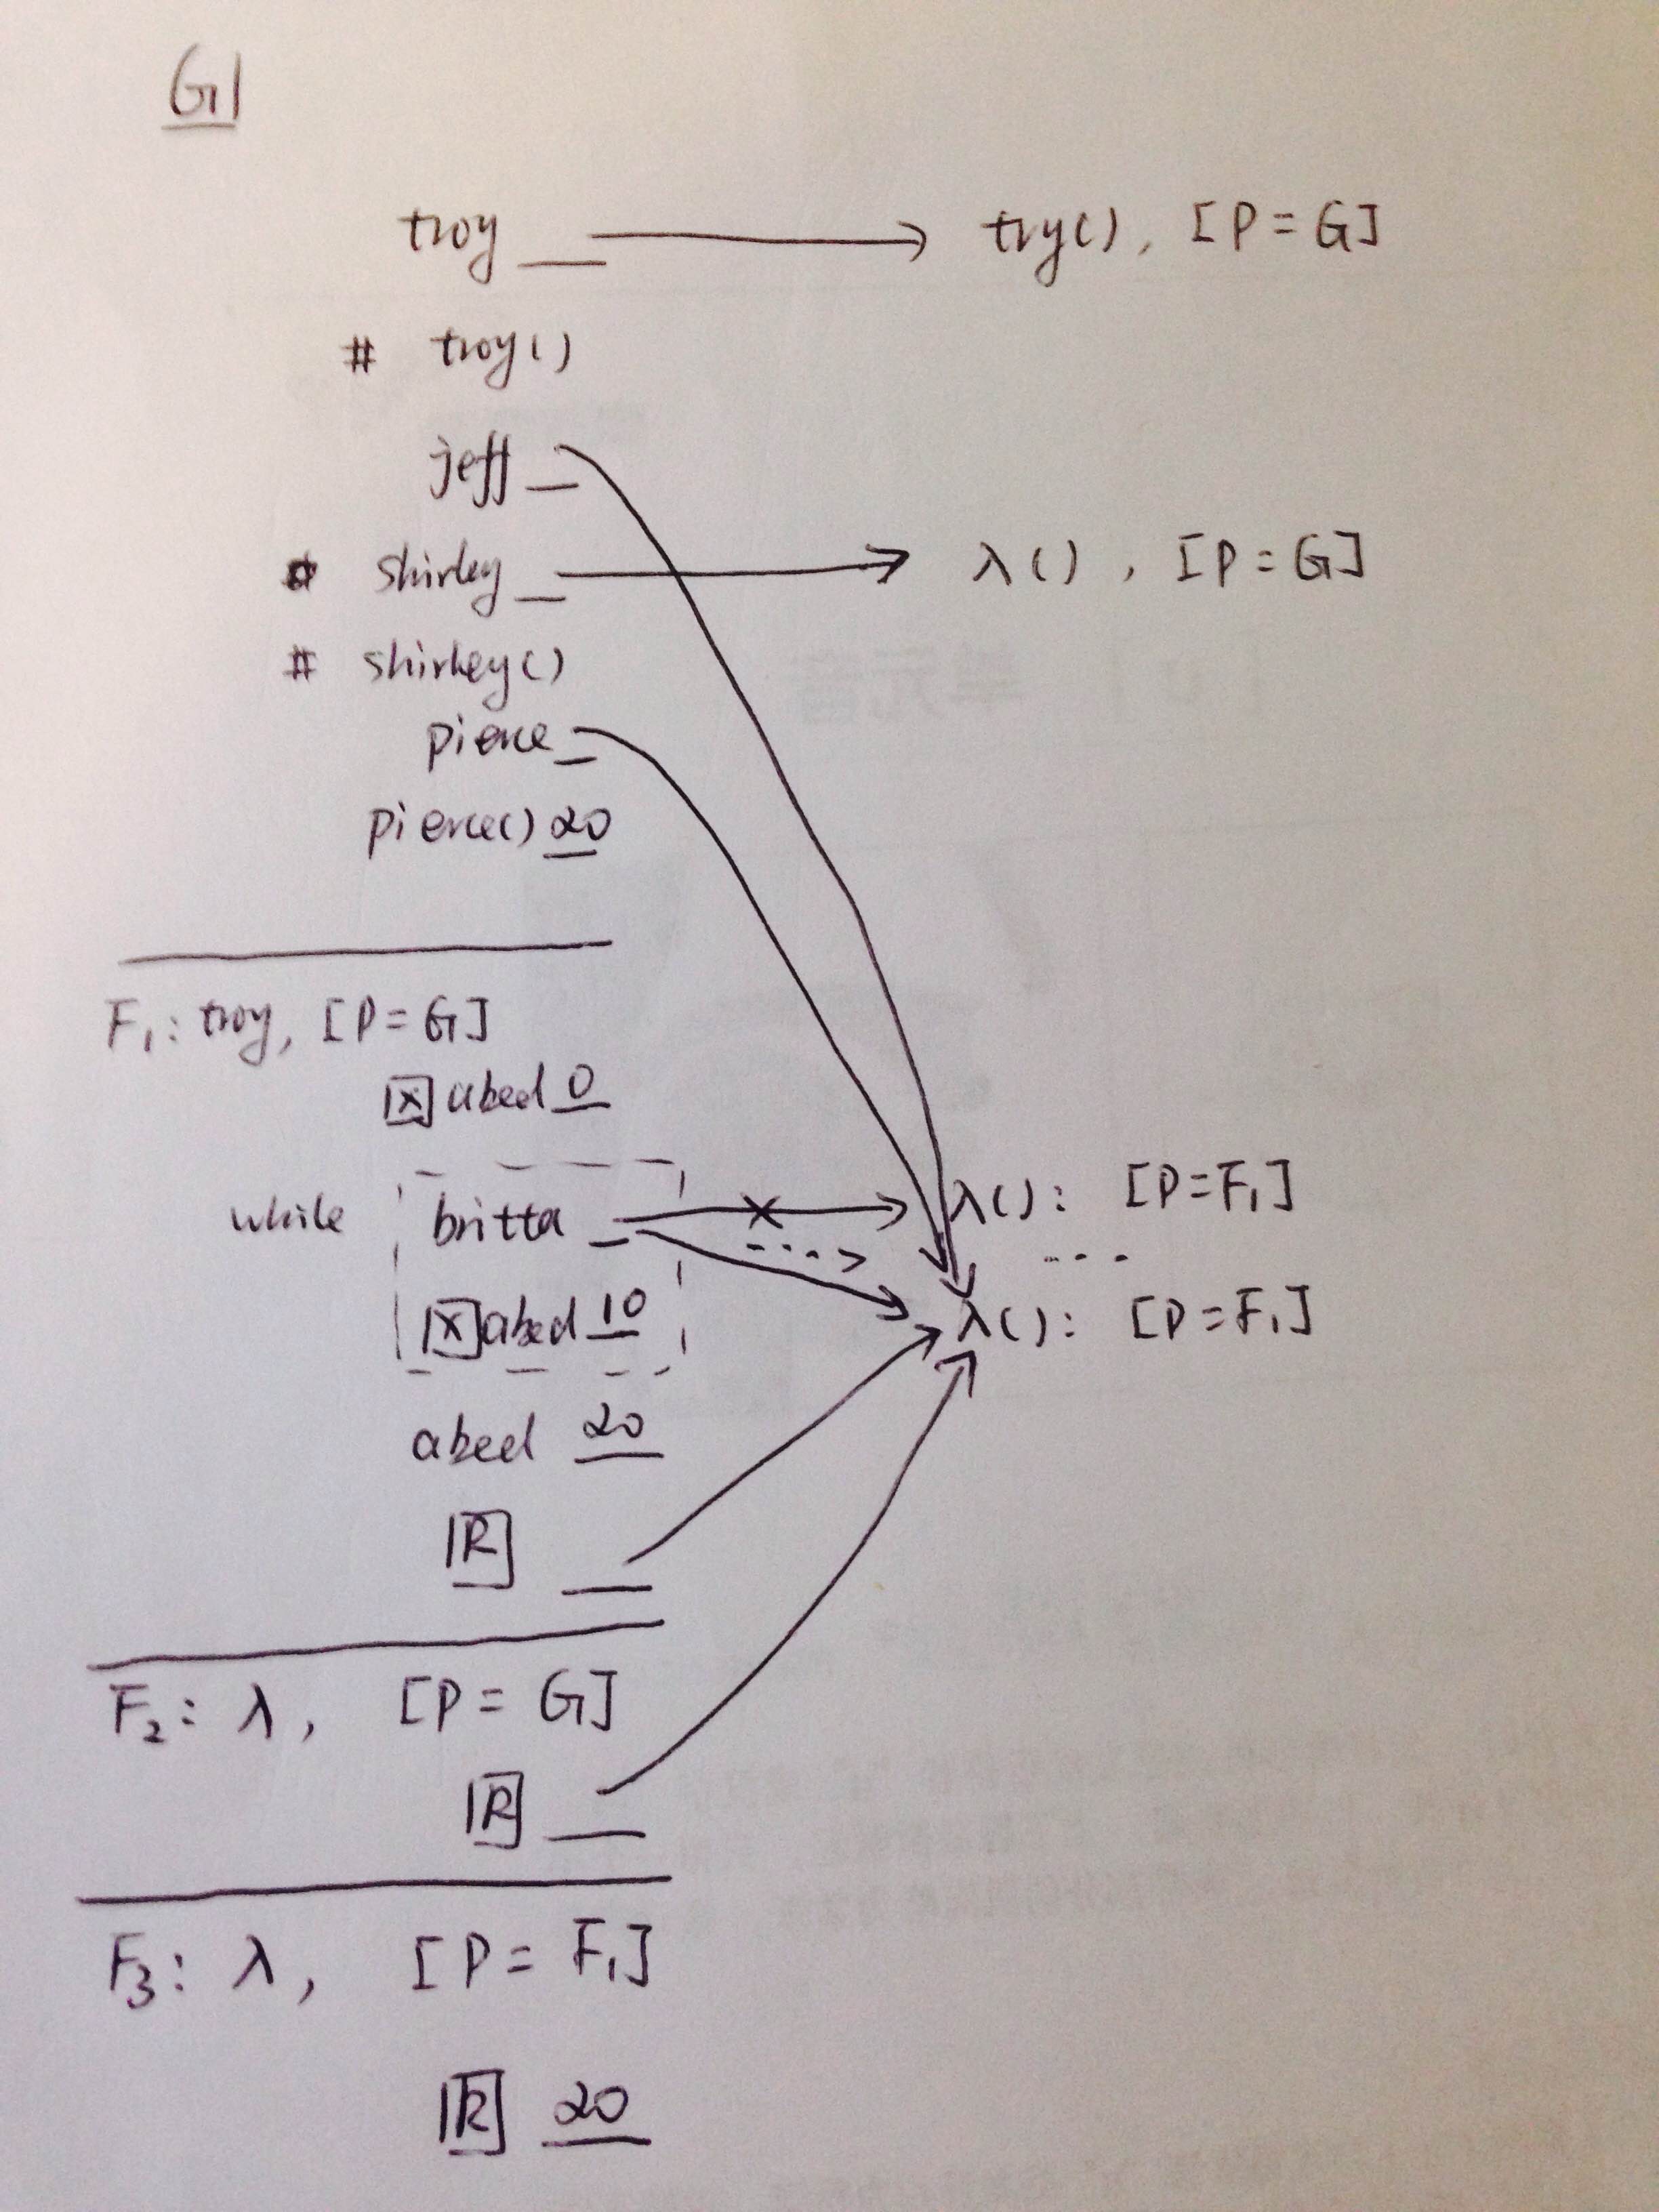 G
troy try(), [P = G]
# troy()
jeff
shirley λ(), [P = G]
# shirley()
pierce
pierce() 20
F1: troy, [P = G]
X abed 0
while britta λ(): [P=F1]
...
X abed 10 λ(): [P=F1]
abed 20
R
F2: λ, [P = G]
R
F3: λ, [P = F1]
R 20